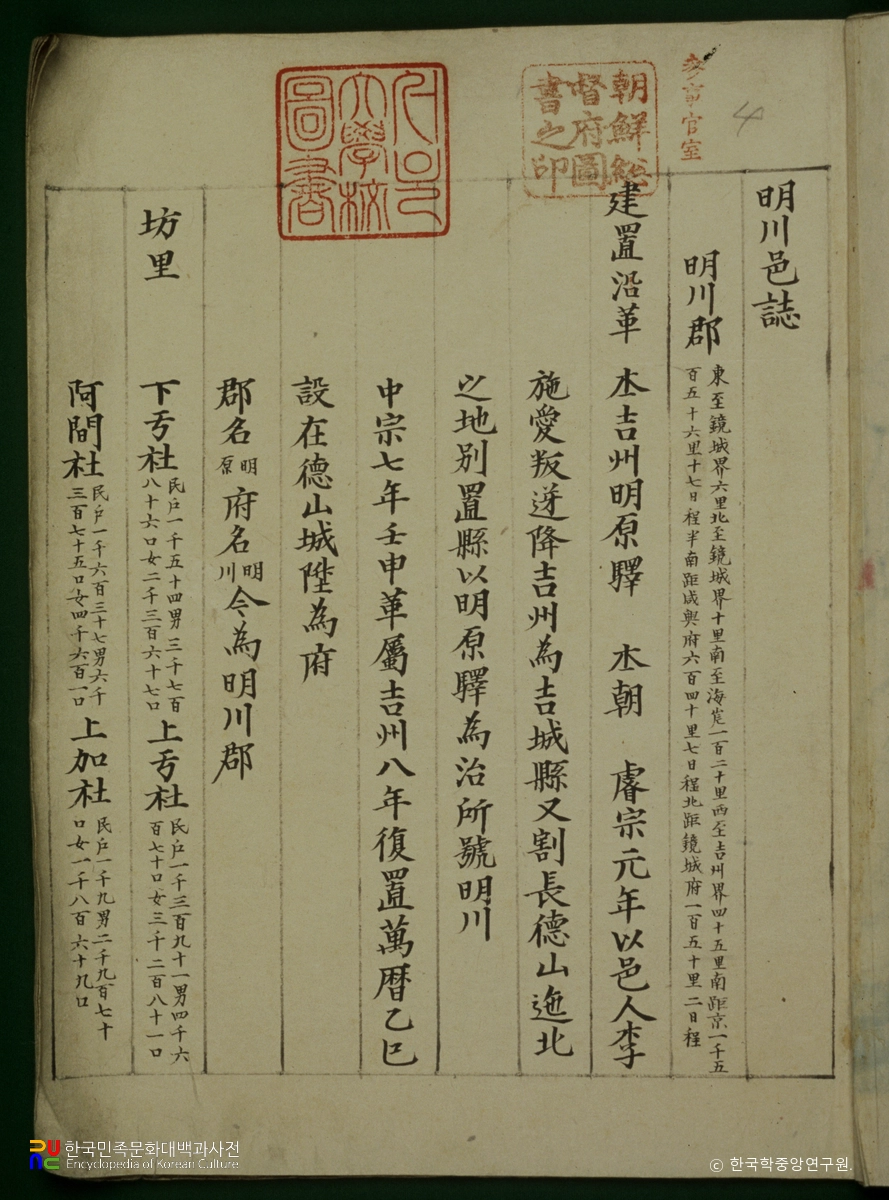 參事官室
4
朝鮮総
督府圖
書之印
大學校
圖書
明川邑誌
明川郡 東至鏡城界六里北至鏡城界十里南至海岸一百二十里西至吉州界四十五里南距京一千五
百五十六里十七日程半南距咸興府六百四十里七日程北距鏡城府一百五十里二日程
建置沿革 本吉州明原驛 本朝 睿宗元年以邑人李
施愛叛逆降吉州為吉城縣又割長德山迤北
之地別置縣以明原驛為治所號明川
中宗七年壬申革屬吉州八年復置萬曆乙巳
設在德山城陞為府
郡名 明原 府名 明川 今為明川郡
坊里 下亐社 民戶一千五十四男三千七百
八十六口女二千三百六十七口 上亐社 民戶一千三百九十一男四千六
百七十口女三千二百八十一口
阿間社 民戶一千六百三十七男六千
三百七十五口女四千六百一口 上加社 民戶一千九男二千九百七十
口女一千八百六十九口
한국민족문화대백과사전
Encyclopedia of Korean Culture
© 한국학중앙연구원.